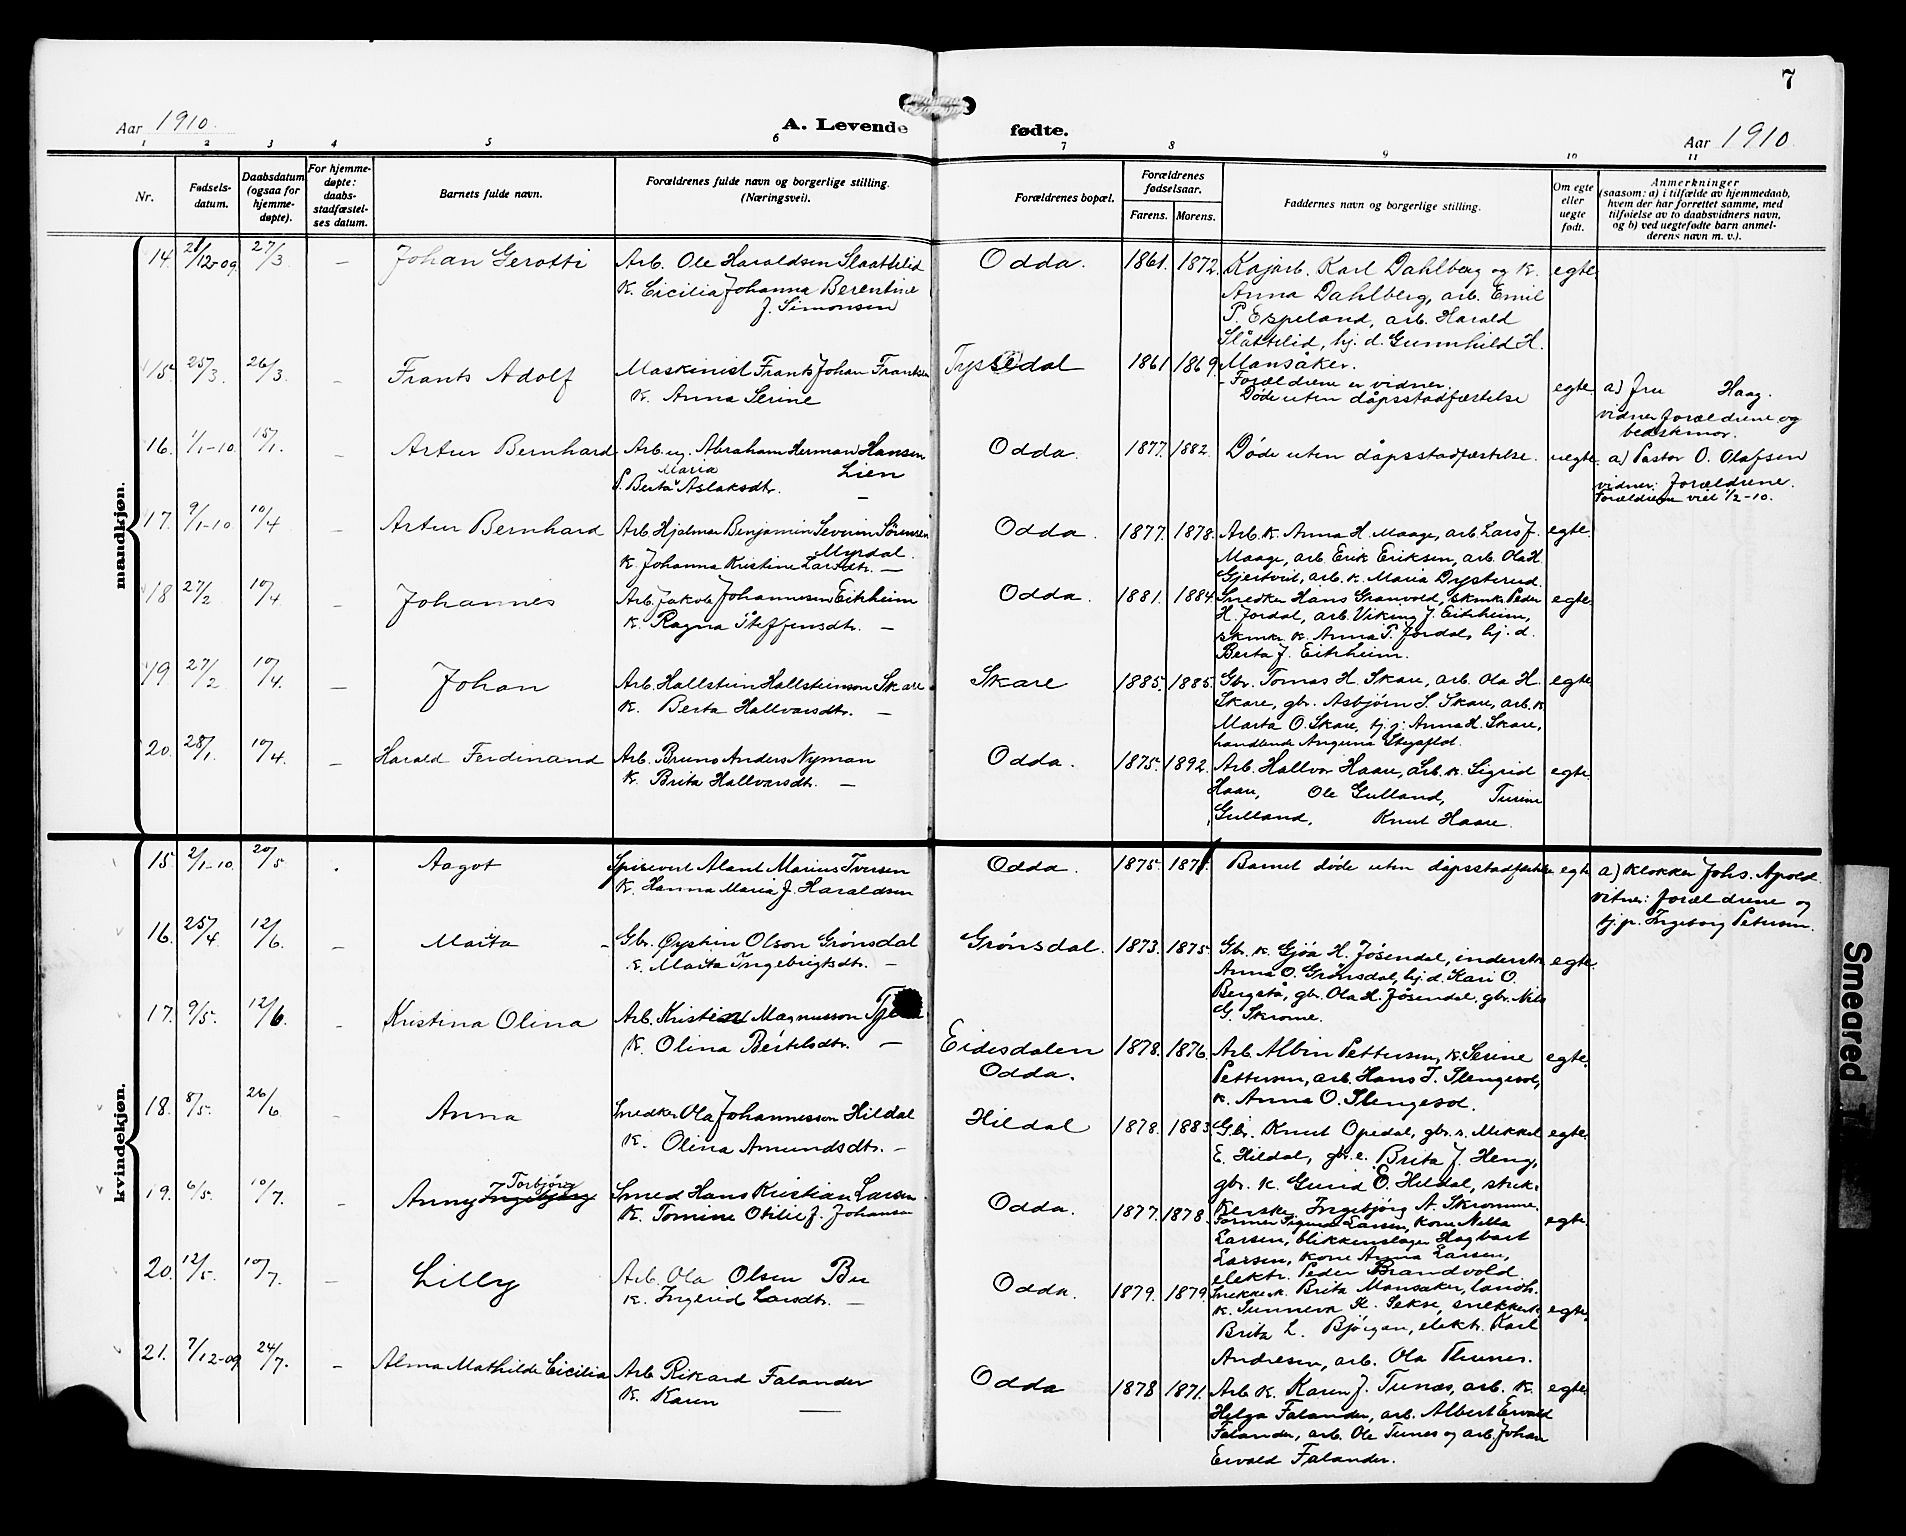 7
Aar 1910.
A. Levende fødte.
Aar 1910.
1 2 3 4 5 6 7 8 9 10 11
Nr.
Fødsels-
datum.
Daabsdatum
(ogsaa for
hjemme-
døpte).
For hjemme-
døpte:
daabs-
stadfæstel-
ses datum.
Barnets fulde navn.
Forældrenes fulde navn og borgerlige stilling.
(Næringsvei).
Forældrenes bopæl.
Forældrenes
fødselsaar.
Farens. Morens.
Faddernes navn og borgerlige stilling.
Om egte
eller
uegte
født.
Anmerkninger
(saasom: a) i tilfælde av hjemmedaab,
hvem der har forrettet samme, med
tilføielse av to daabsvidners navn,
og b) ved uegtefødte barn anmel-
derens navn m. v.).
mandkjøn.
14. 21/12-09. 27/3 — Johan Gerotti
Arb. Ole Haraldsen Slaattelid
K. Cicilia Johanna Berentine
J. Simonsen
Odda. 1861. 1872.
Kajarb. Karl Dahlberg og k.
Anna Dahlberg, arb. Emil
P. Espeland, arb. Harald
Slåttelid, hj. d. Gunnhild H.
Mansåker.
egte
15. 25/3. 26/3. — Frants Adolf
Maskinist Frants Johan Frantsen
K. Anna Serine
Tyssedal 1861 1869.
- Forældrene er vidner.
Døde uten dåpsstadfæstelse
egte.
a) Fru Haag.
vidner forældrene og
bedstemor.
16. 1/1-10. 15/1. — Artur Bernhard
Arb. ug. Abraham Herman Hansen
Lien
P. Berta Maria Aslaksdtr. —
Odda. 1877. 1882.
Døde uten dåpsstadfæstelse.
uegte.
a) Pastor O. Olafsen
vidner: Forældrene.
Forældrene viet 1/2-10.
17. 9/1-10 10/4 — Artur Bernhard
Arb. Hjalmar Benjamin Severin Sørensen
Myrdal.
K. Johanna Kristine Larsdtr. —
Odda. 1877. 1878.
Arb. k. Anna H. Maage, arb. Lars J.
Maage, arb. Erik Eriksen, arb. Ola H.
Gjertveit, arb. k. Maria Dysterud.
egte.
18 27/2 10/4. — Johannes
Arb. Jakob Johannesen Eitrheim
K. Ragna Steffensdtr. —
Odda. 1881. 1884
Smedker Hans Granvold, skmk. Peder
H. Jordal, arb. Viking J. Eitrheim,
skmkr. k. Anna P. Jordal, hj. d.
Berta J. Eitrheim.
egte.
19 27/2 10/4. — Johan
Arb. Hallstein Hallsteinson Skare
K. Berta Hallvarsdtr. —
Skare 1885. 1885.
Gbr. Tomas H. Skare, arb. Ola H.
Skare, gbr. Asbjørn S. Skare, arb. k.
Marta O. Skare, tj. j. Anna H. Skare,
handlende Angerna Stegaflot.
egte
20. 28/1. 10/4. — Harald Ferdinand
Arb. Bruno Anders Nyman
K. Brita Hallvarsdtr. —
Odda. 1875. 1892.
Arb. Hallvor Haare, arb. k. Sigrid
Haare, Ole Gulland, Turine
Gulland, Knut Haare.
egte.
kvindekjøn.
15. 2/1-10. 20/5 . Aagot
Spisevert Alant Marius Iversen
K. Hanna Maria J. Haraldsen
Odda. 1875.
Barnet døde uten dåpsstadfæstelse
egte
a) Klokker Johs. Apold.
vitner: forældrene og
tj. p. Ingeborg Petersen.
16. 25/4. 12/6. — Marta
Gbr. Øystin Olson Grønsdal
K. Marta Ingebrigtsdtr. —
Grønsdal. 1873. 1875.
Gbr. k. Gjøa H. Jøsendal, inderstk.
Anna O. Grønsdal, hj. d. Kari O.
Bergstå, gbr. Ola H. Jøsendal, gbr. Nils
G. Skrome.
egte.
17. 9/5. 12/6. — Kristina Olina
Arb. Kristen Magnusson
K. Olina Bertelsdtr. —
Eidesdalen
Odda.
1878. 1876.
Arb. Albin Pettersen, k. Serine
Pettersen, arb. Hans T. Slengesol,
k. Anna O. Slengesol.
egte.
18. 8/5. 26/6. — Anna
Smedker Ola Johannesson Hildal
K. Olina Amundsdtr. —
Hildal 1878. 1883.
Gbr. Knut Opedal, gbr. s. Mikkel
E. Hildal, gbr. e. Brita J. Heng,
gbr. k. Gurid E. Hildal, strik-
kerske Ingebjørg A. Skromme.
egte.
19. 6/5. 10/7. — Anny Torbjørg Ingebjørg
Smed Hans Kristian Larsen.
K. Tomine Otilie J. Johansen
Odda. 1877. 1878.
Former Sigurd Larsen, kone Nilla
Larsen, blikkenslager Hagbart
Larsen, kone Anna Larsen,
elektr. Peder Brandvold.
egte
20. 12/5. 10/7. — Lilly
Arb. Ola Olsen Bu
K. Ingerid Larsdtr. —
Odda. 1879. 1879.
Snekkerk. Brita Mansåker, landh.
k. Sunneva K. Sekse, snekkerk
Brita L. Bjørgan, elektr. Karl
Andresen, arb. Ola Thunes.
egte.
21. 7/12-09 24/7. — Alma Mathilde Cicilia
Arb. Rikard Falander
K. Karen —
Odda 1878 1871.
Arb. k. Karen J. Tunæs, arb. k.
Helga Falander, arb. Albert Ewald
Falander, arb. Ole Tunes og arb. Johan
Ewald Falander.
egte.
Smeared